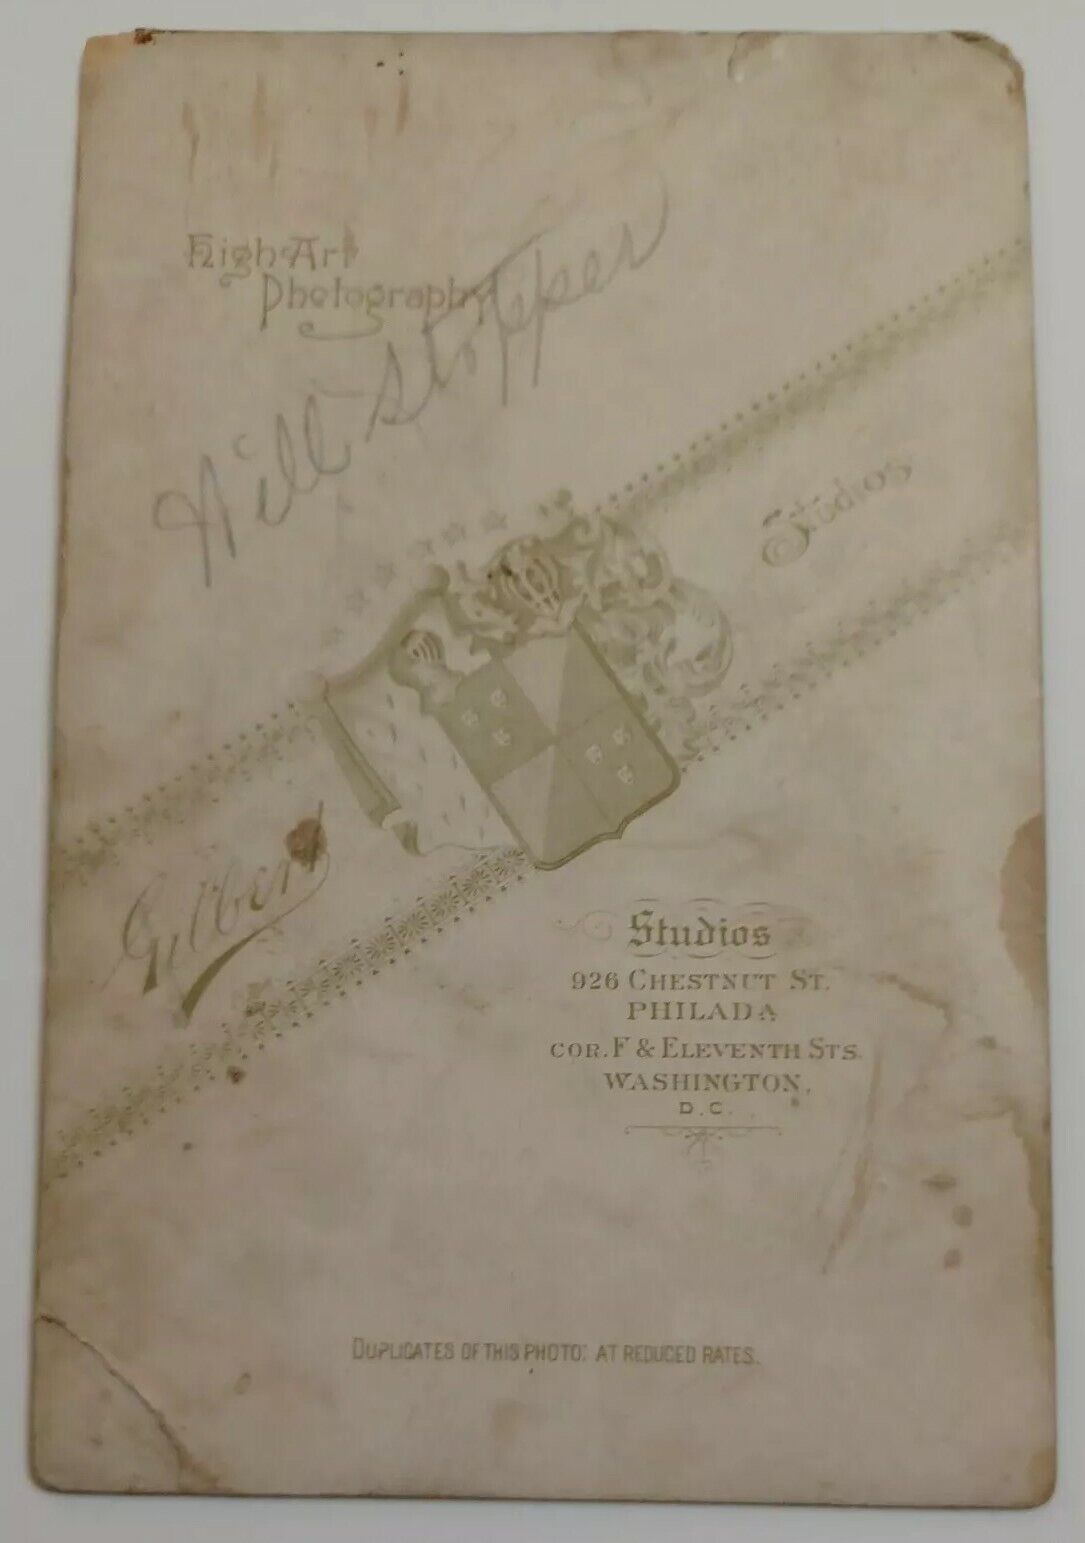 High-Art
Photography
Will Stopper
Studios
Gilbert
Studios
926 CHESTNUT ST.
PHILADA
COR. F & ELEVENTH STS.
WASHINGTON,
D.C.
DUPLICATES OF THIS PHOTO: AT REDUCED RATES.